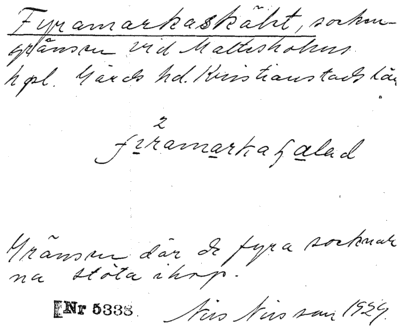 Fyramarkaskäht, socken-
gränsen vid Mattisholms
hpl. Gärds hd. Kristianstads län
2
Gränsen där de fyra socknar
na stöta ihop.
Nr 5338. Nils Nilsson 1929.